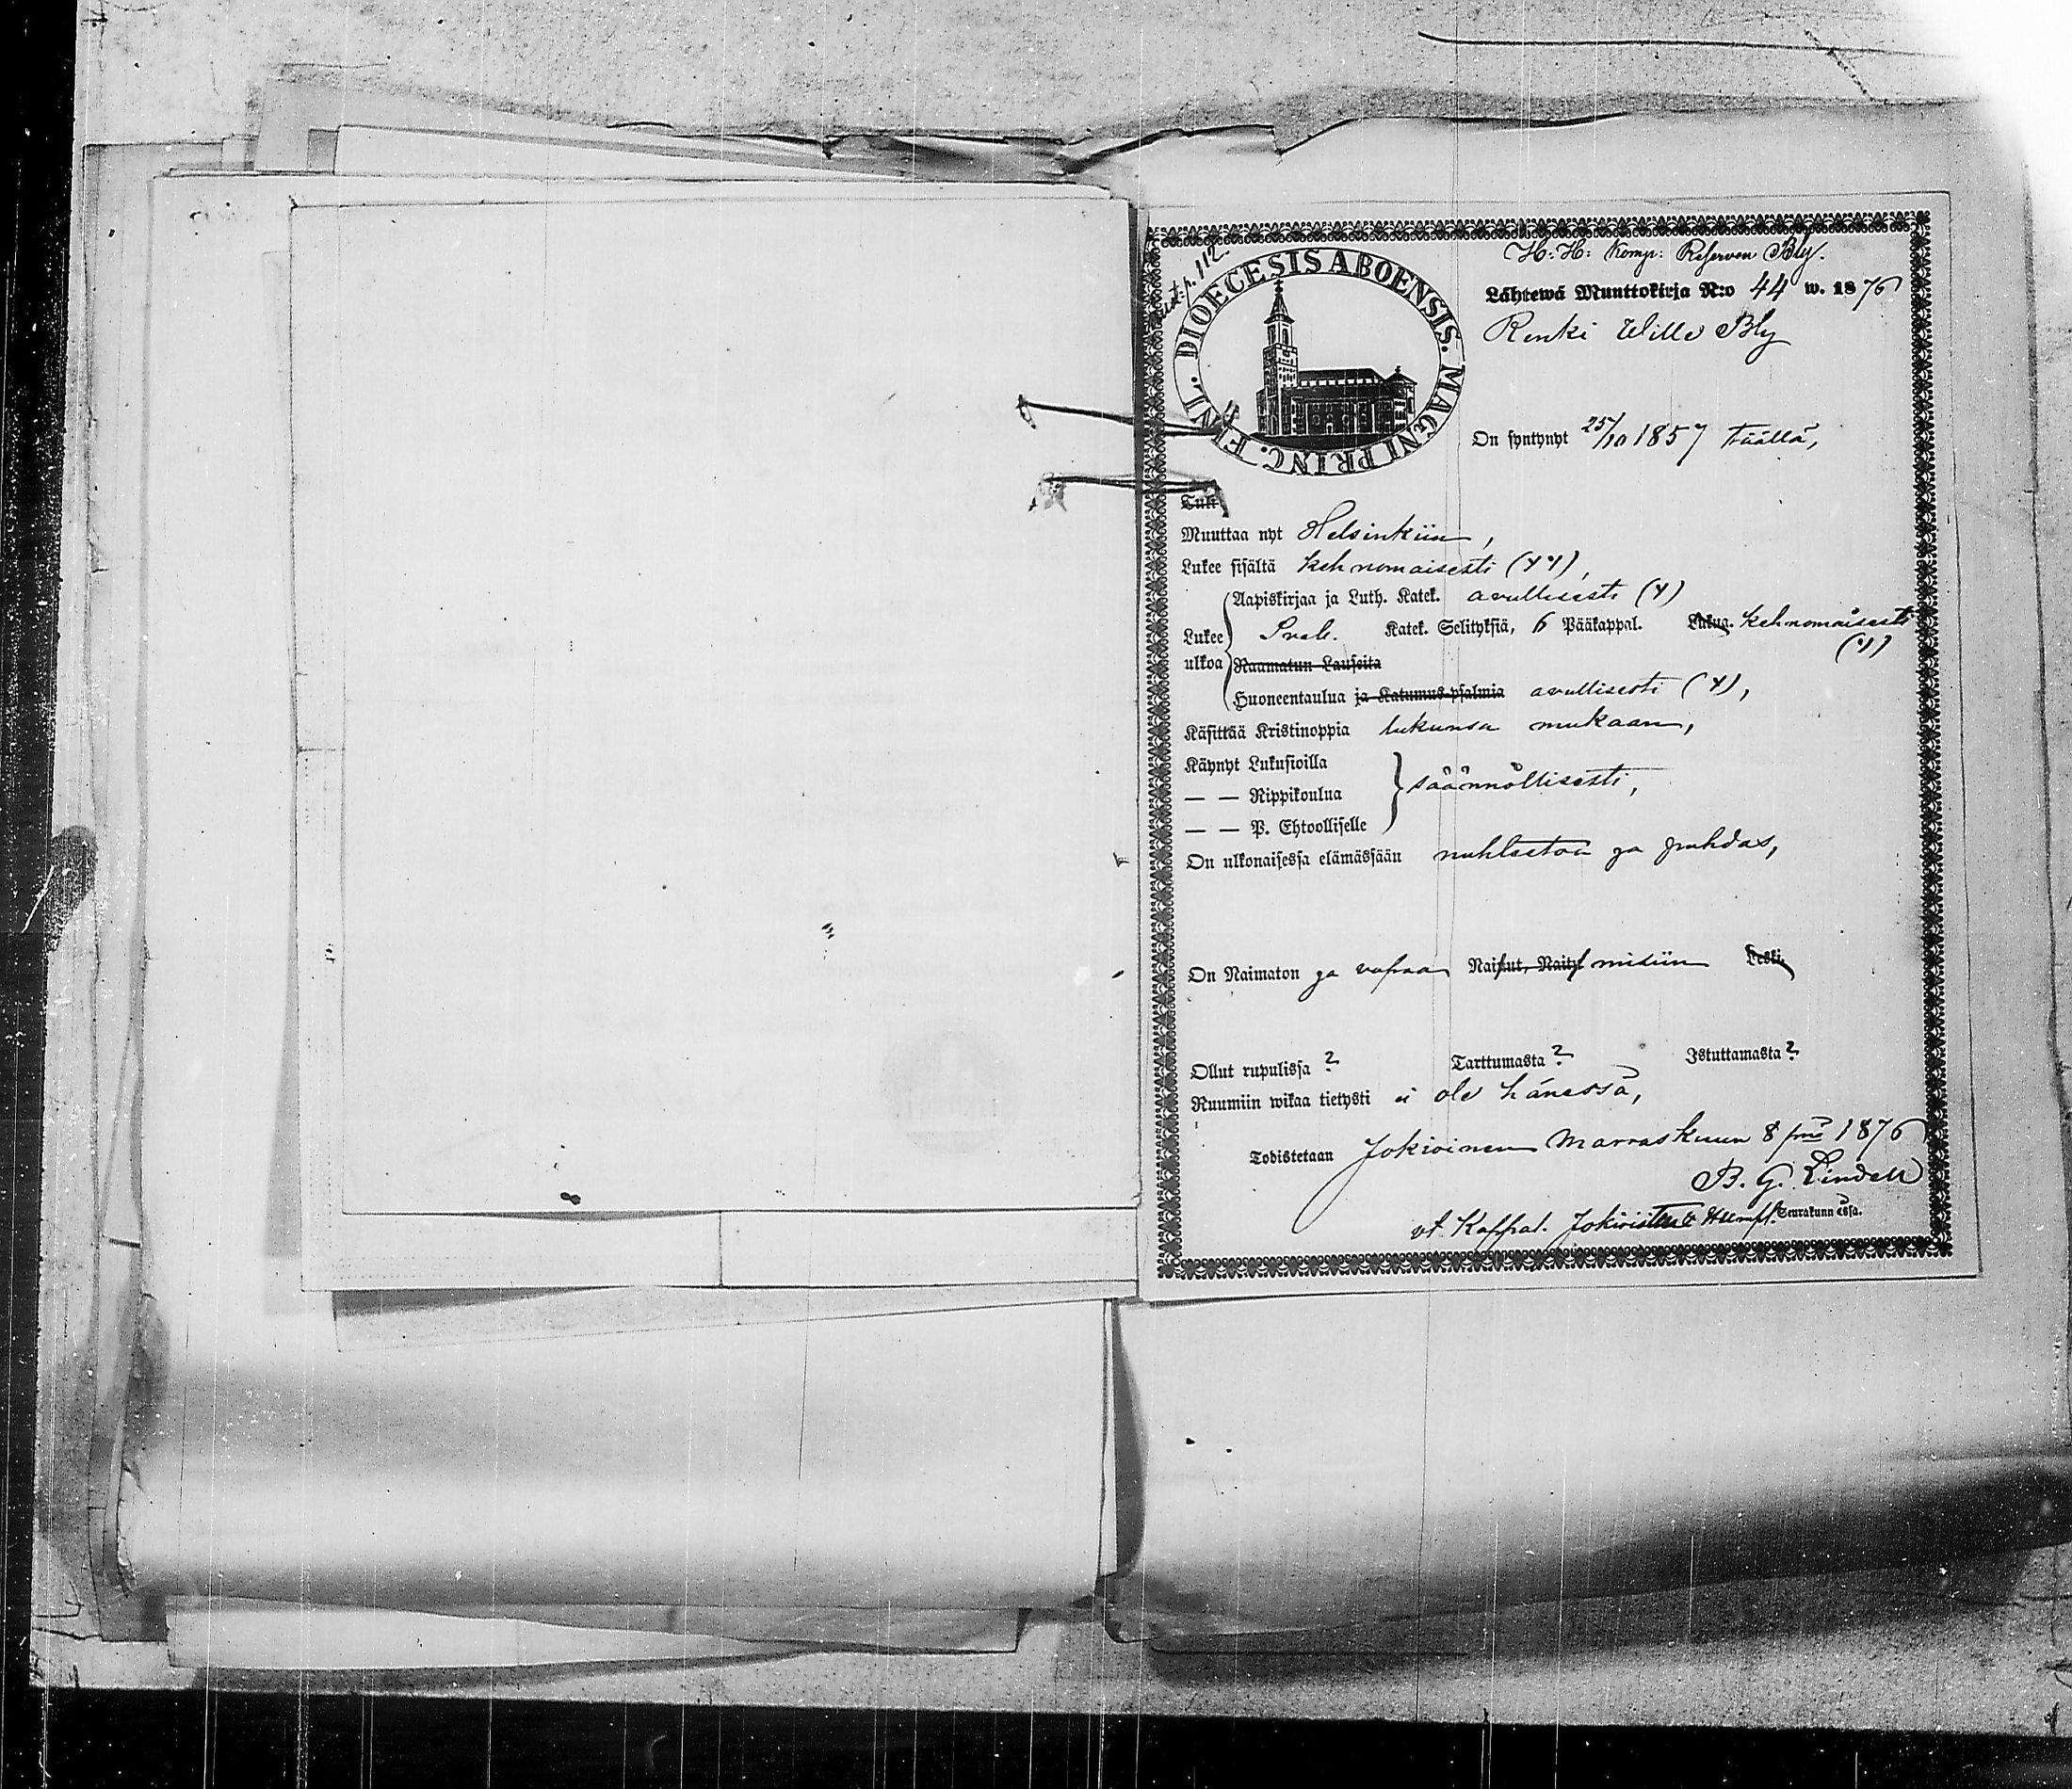 H. H. Komp: Reserven Bly.
p. 112.
DIOECESIS ABOENSIS. MAGNI PRINC. FINL.
Lähtewä Muuttokirja N:o 44 w. 1876
Renki Wille Bly
On syntynyt 25/10 1857 täällä,
Tuli
Muuttaa nyt Helsinkiin,
Lukee sisältä kehnomaisesti (YY),
Aapiskirjaa ja Luth. Katek. avullisesti (Y)
Lukee ulkoa Sveb. Katek. Selityksiä, 6 Pääkappal. Lukua. kehnomaisesti
(Y)
Raamatun Lauseita
Huoneentaulua ja Katumus-psalmia avullisesti (Y),
Käsittää Kristinoppia lukunsa mukaan,
Käynyt Lukusioilla
— — Rippikoulua säännöllisesti,
— — P. Ehtoolliselle
On ulkonaisessa elämässään nuhteeton ja puhdas,
On Naimaton ja vapaa Naisut, Naity naimisiin Leski,
Ollut rupulissa ? Tarttumasta ? Istuttamasta ?
Ruumiin wikaa tietysti ei ole hänessä,
Todistetaan Jokioinen Marraskuun 8 pnä 1876
B. G. Lindell
vt. Kappal. Jokioisten Seurakunnassa.